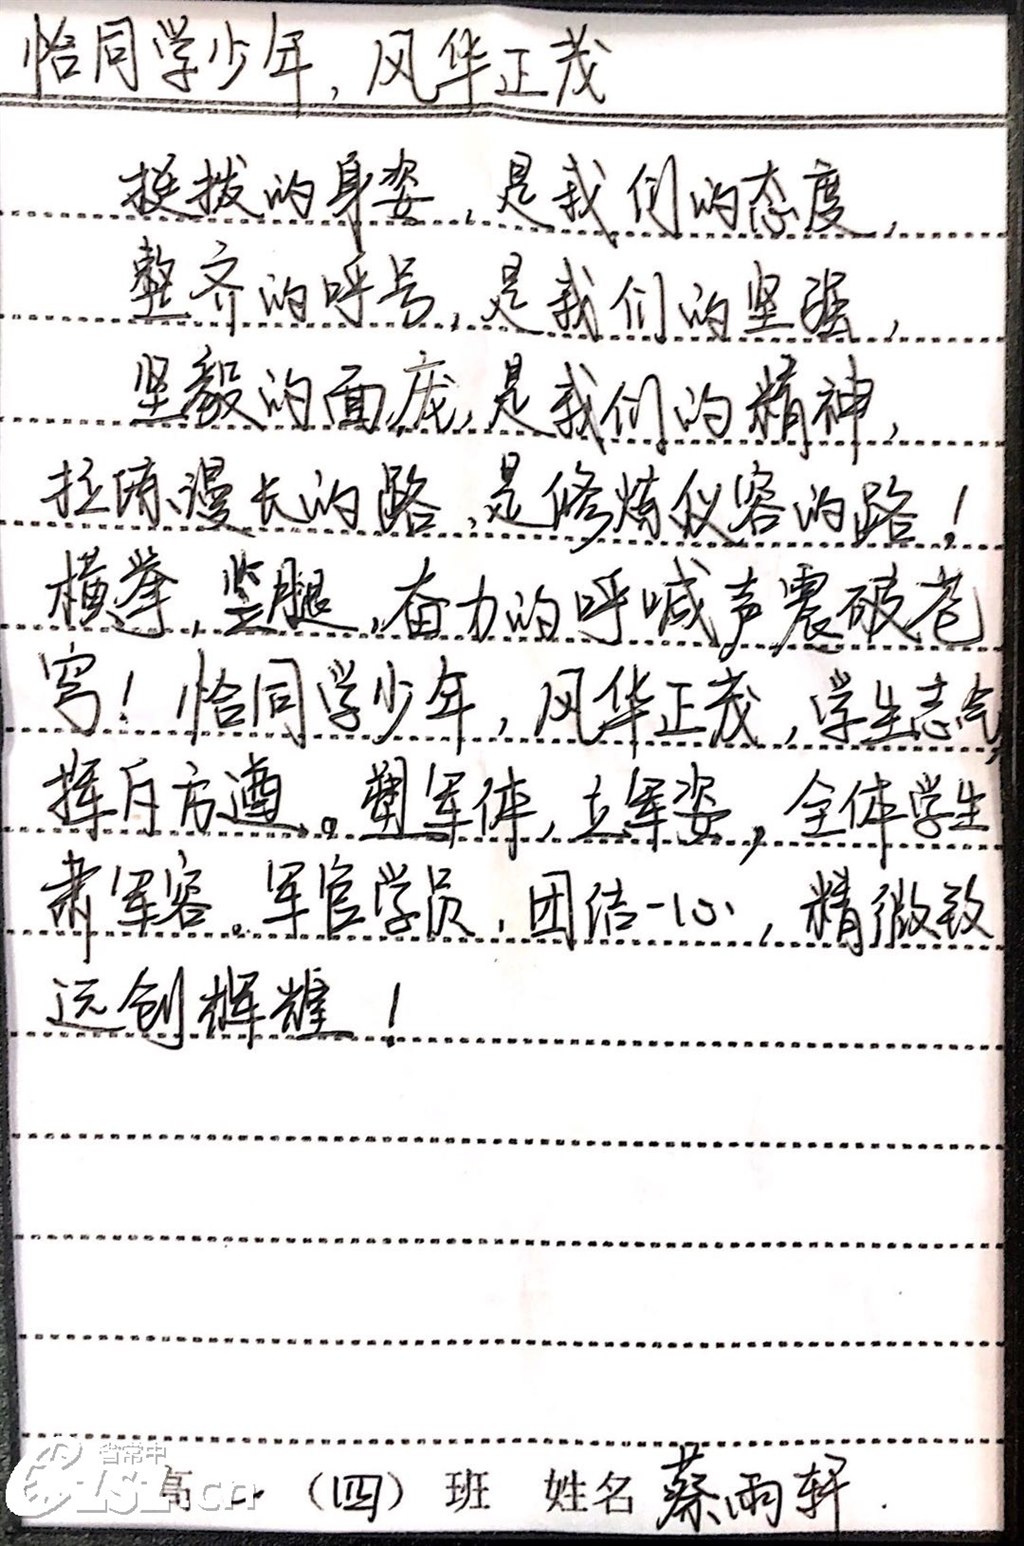 恰同学少年，风华正茂
挺拨的身姿，是我们的态度，
整齐的呼号，是我们的坚强，
坚毅的面庞，是我们的精神，
拉练漫长的路，是修炼仪容的路！
横拳，竖腿，奋力的呼喊声震破苍
穹！恰同学少年，风华正茂，学生志气，
挥斥方遒。塑军体，立军姿，全体学生
肃军容。军官学员，团结一心，精微致
远创辉煌！
省常中
高一（四）班 姓名 蔡雨轩